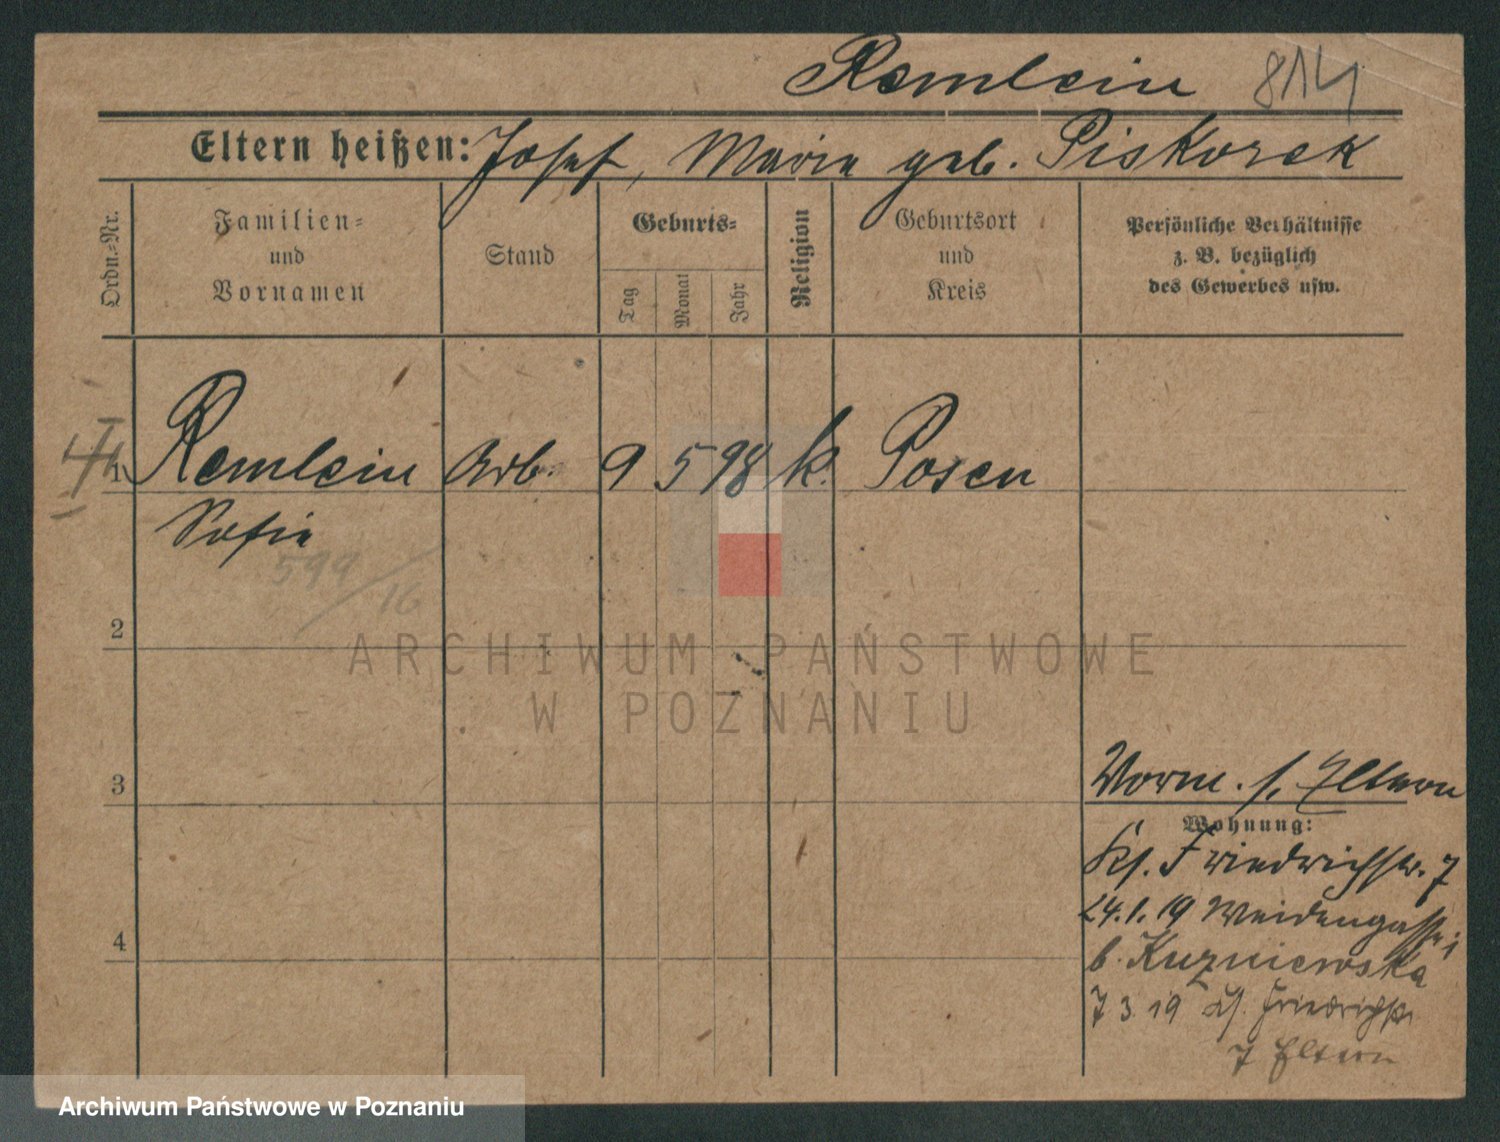 Remlein 814
Eltern heißen: Josef, Marie geb. Piskorek
Ordn.-Nr.
Familien-
und
Vornamen
Stand
Geburts-
Tag
Monat
Jahr
Religion
Geburtsort
und
Kreis
Persönliche Verhältnisse
z. B. bezüglich
des Gewerbes usw.
1 Remlein Arb. 9 5 98 k. Posen
Sofie
599/16
2
ARCHIWUM PAŃSTWOWE
W POZNANIU
3
Vorm. s. Eltern
Wohnung:
Kl. Friedrichstr. 7
24.1.19 Weidengasse 1
b. Kuzniewska
4
7 3 19 Kl. Friedrichstr.
7 Eltern
Archiwum Państwowe w Poznaniu